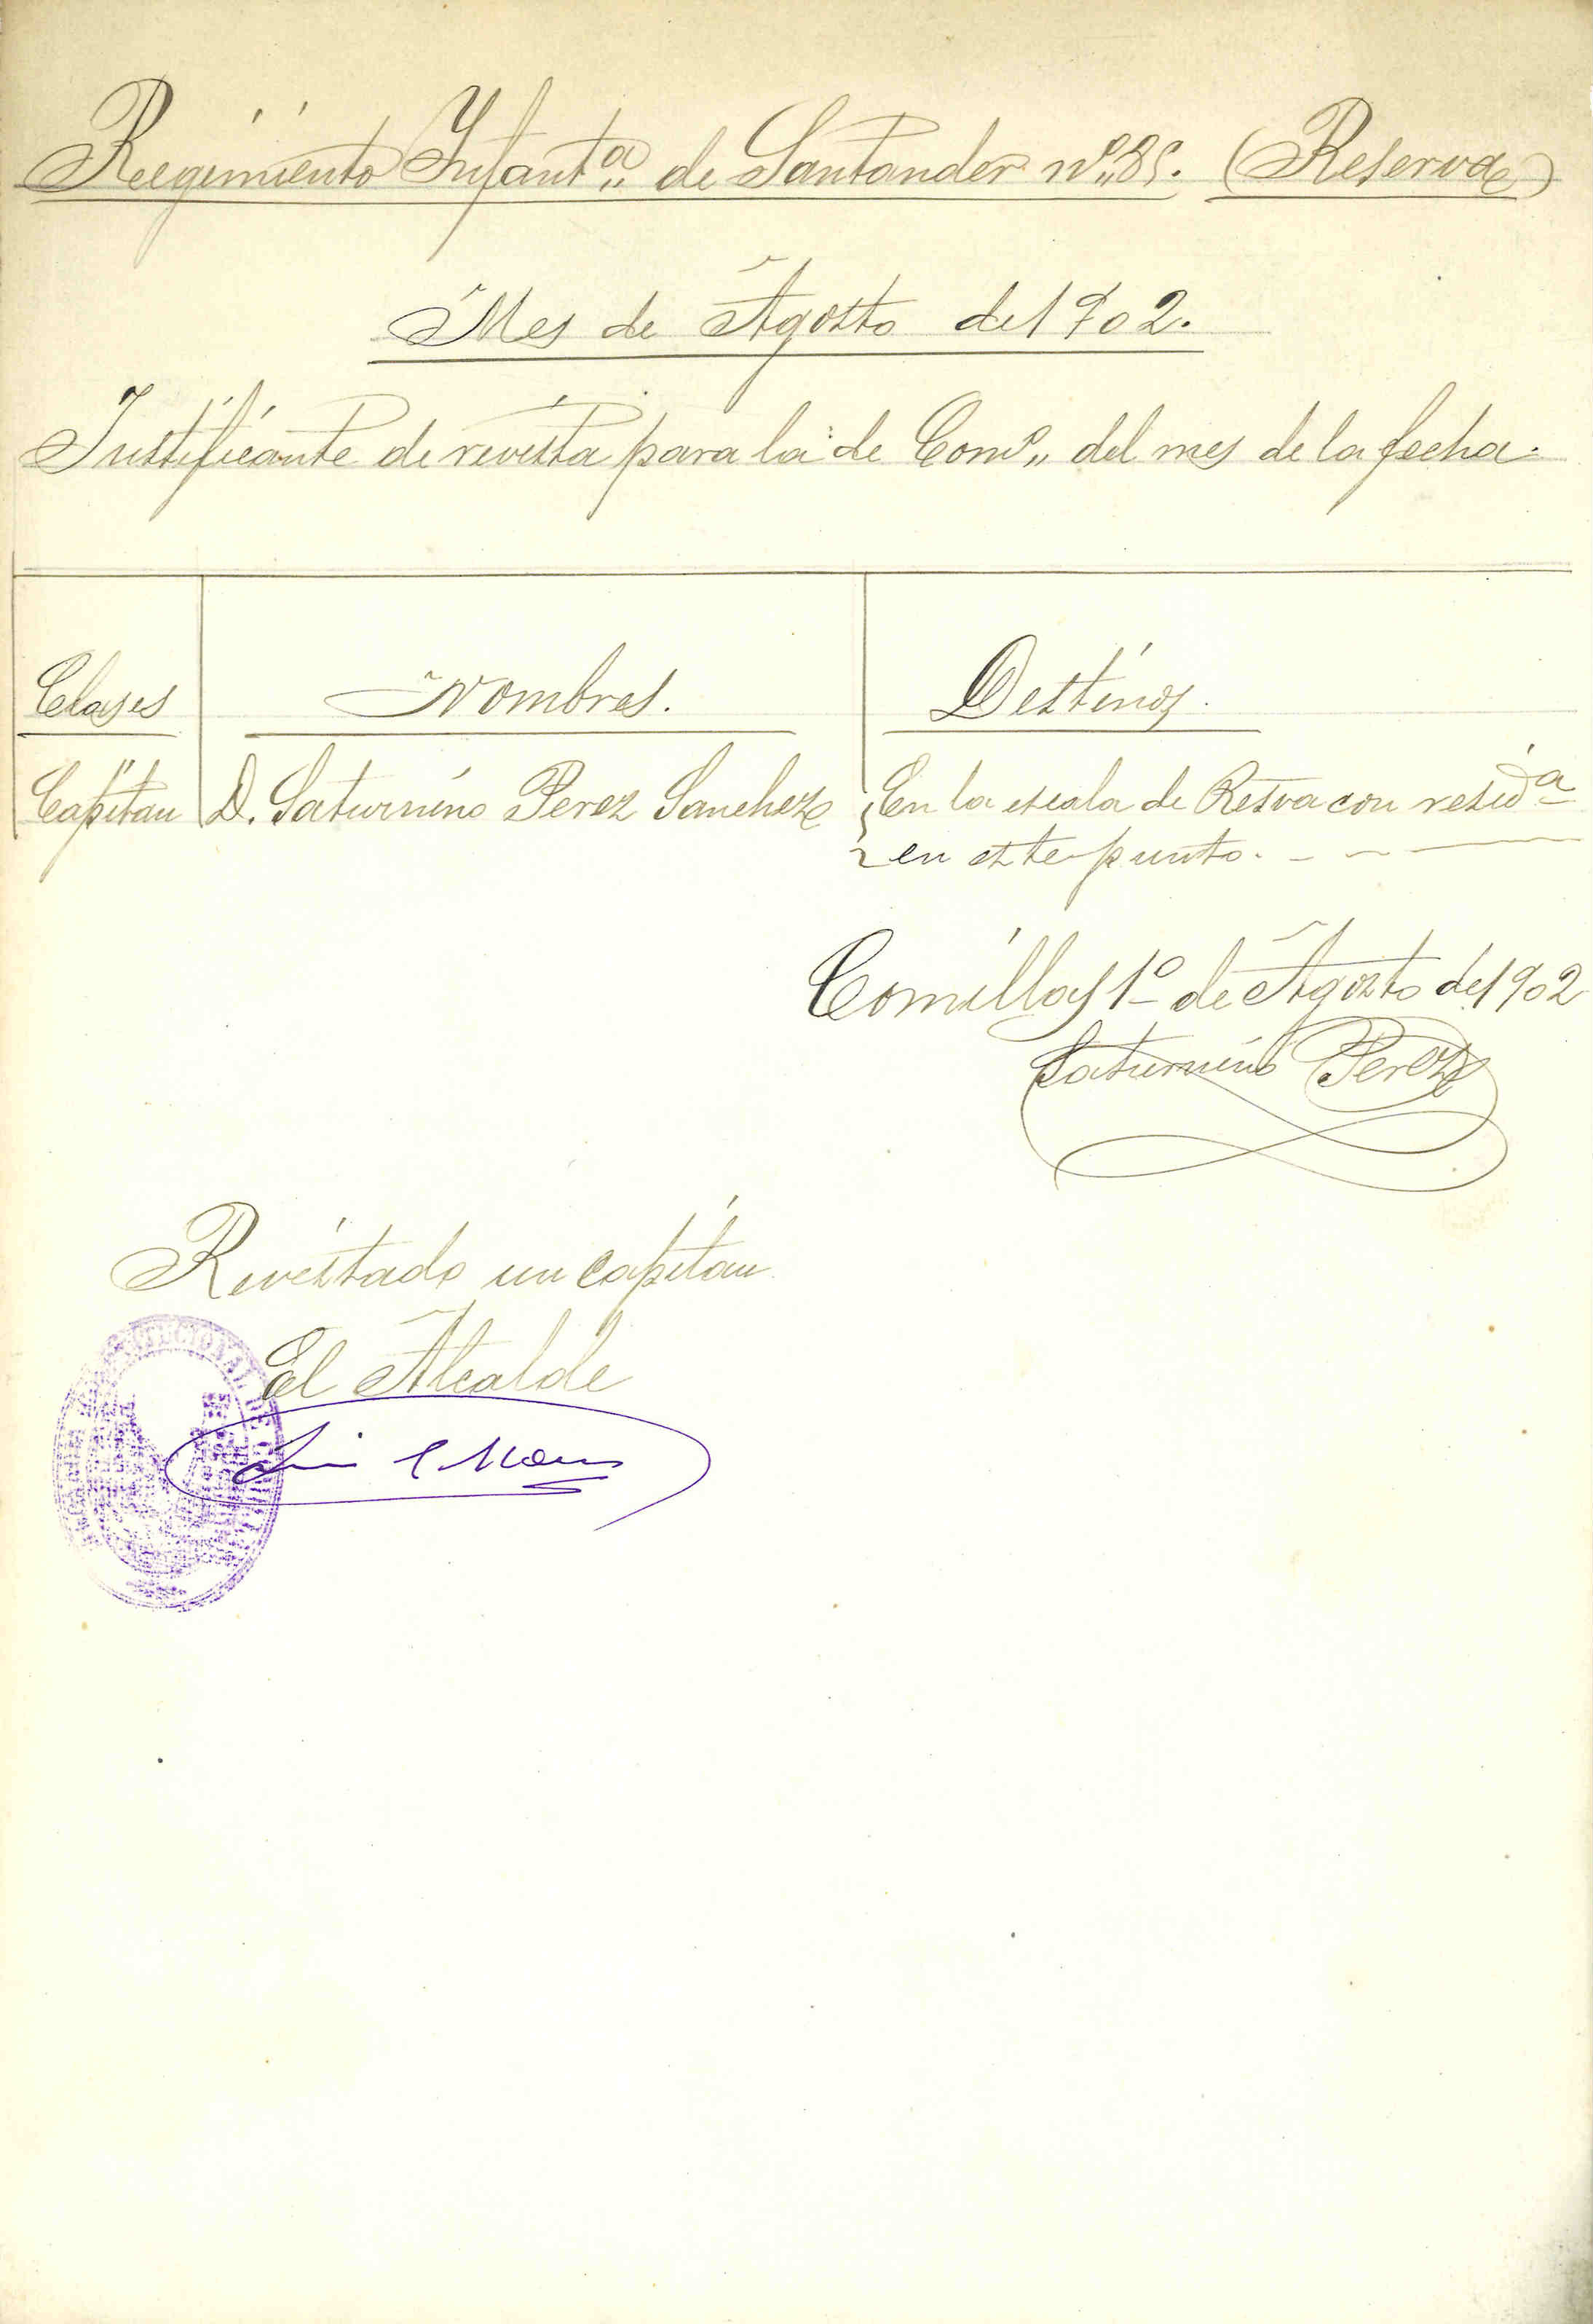 Regimiento Infantª de Santander nº 85. (Reserva)
Mes de Agosto de 1902.
Justificante de revista para la de Comº del mes de la fecha.
Clases Nombres. Destinos.
Capitan D. Saturnino Perez Sanchez En la escala de Resva con residª
en este punto.
Comillas 1º de Agosto de 1902
Saturnino Perez
Revistado un capitan
El Alcalde